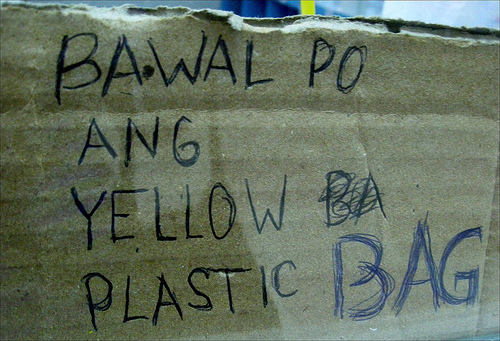 BAWAL PO
ANG
YELLOW BA
PLASTIC BAG